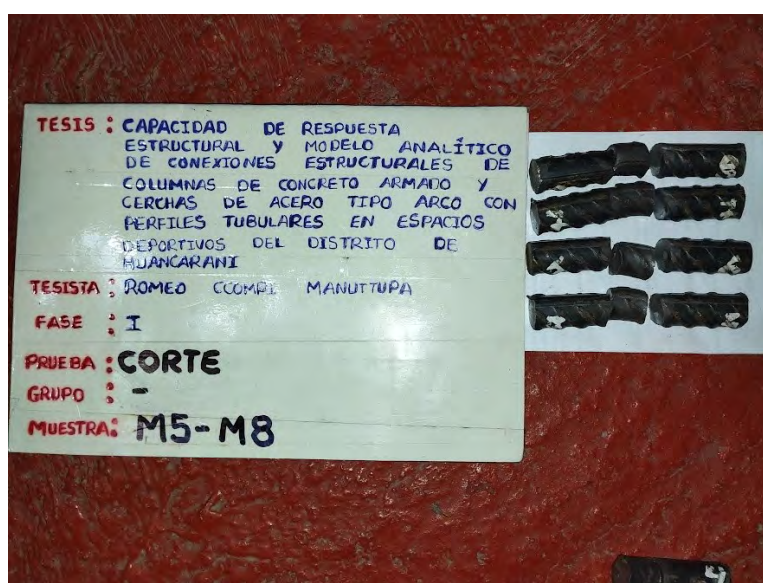 TESIS : CAPACIDAD DE RESPUESTA
ESTRUCTURAL Y MODELO ANALÍTICO
DE CONEXIONES ESTRUCTURALES DE
COLUMNAS DE CONCRETO ARMADO Y
CERCHAS DE ACERO TIPO ARCO CON
PERFILES TUBULARES EN ESPACIOS
DEPORTIVOS DEL DISTRITO DE
HUANCARANI
TESISTA : ROMEO CCOMPI MANUTTUPA
FASE : I
PRUEBA : CORTE
GRUPO : -
MUESTRA: M5-M8